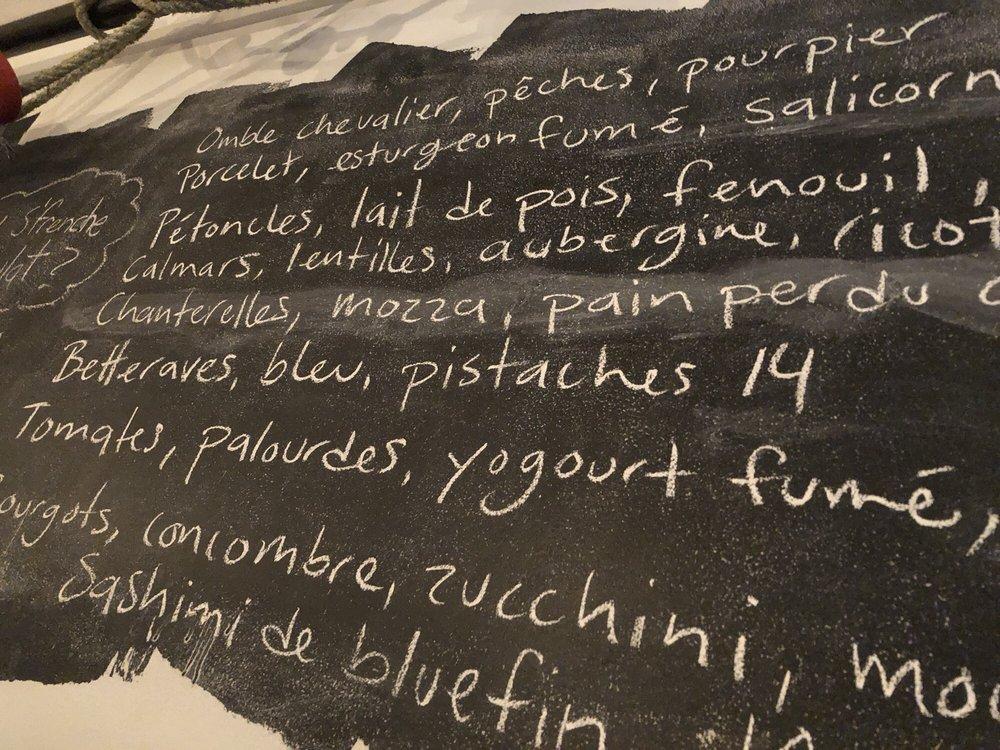 Omble chevalier, pêches, pourpier
Porcelet, esturgeon fumé, salicorn
Pétoncles, lait de pois, fenouil,
Calmars, lentilles, aubergine, ricot
Chanterelles, mozza, pain perdu
Betteraves, bleu, pistaches 14
Tomates, palourdes, yogourt fumé,
ourgots, concombre, zucchini, mo
Sashimi de bluefin